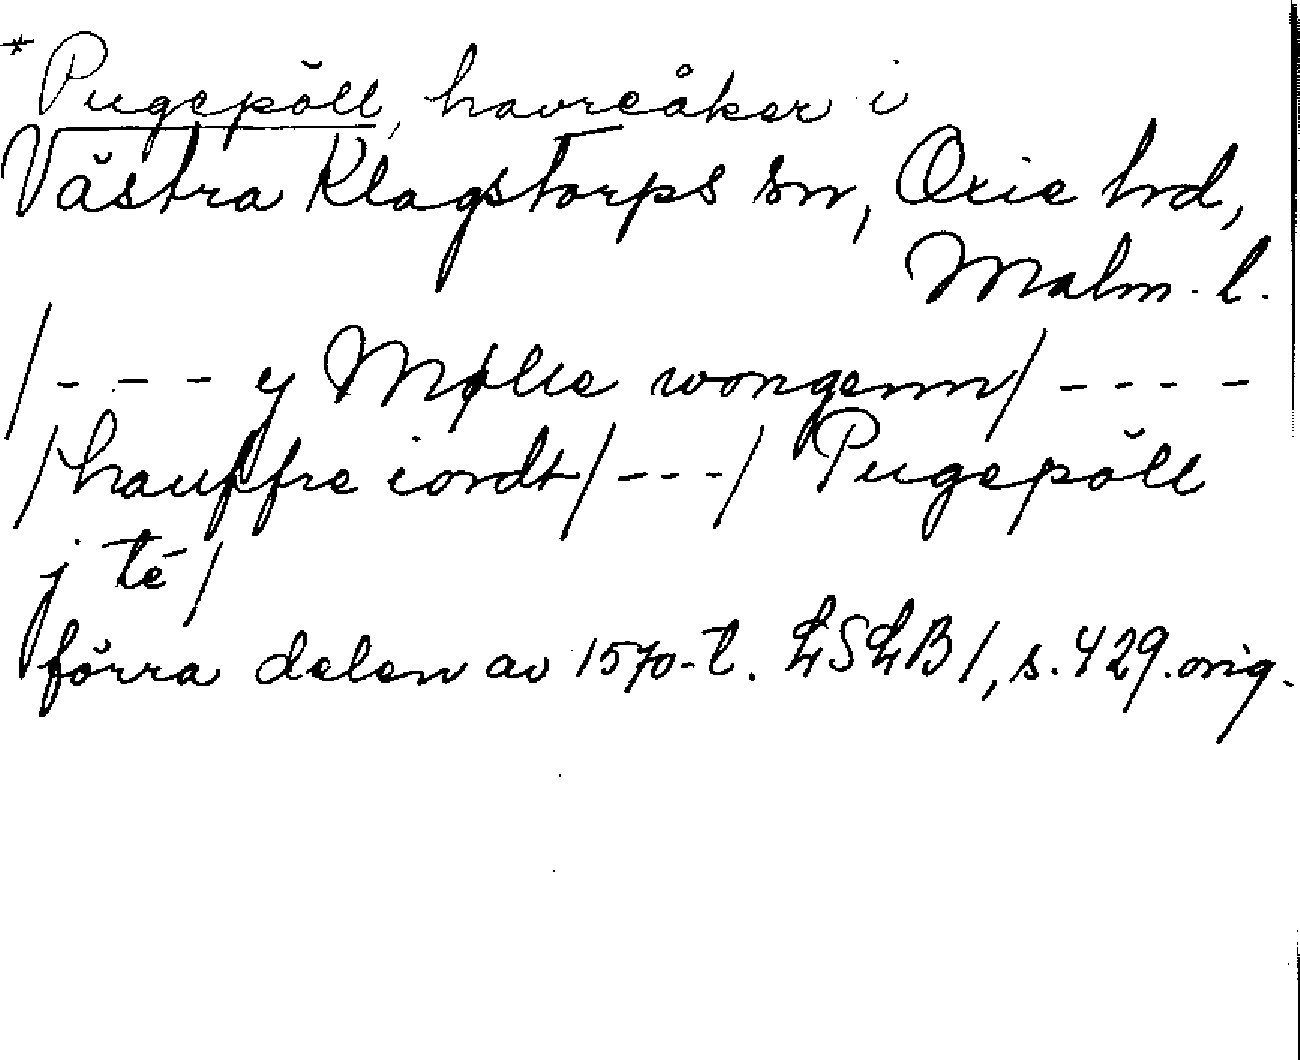 * Pugepöll, havreåker i
Västra Klagstorps sn, Oxie hd,
Malm. l.
/ - - - y Mølle wongenn / - - - -
/ hauffre iordt / - - - / Pugepöll
j té /
förra delen av 1570-t. LSLB 1, s. 429. orig.